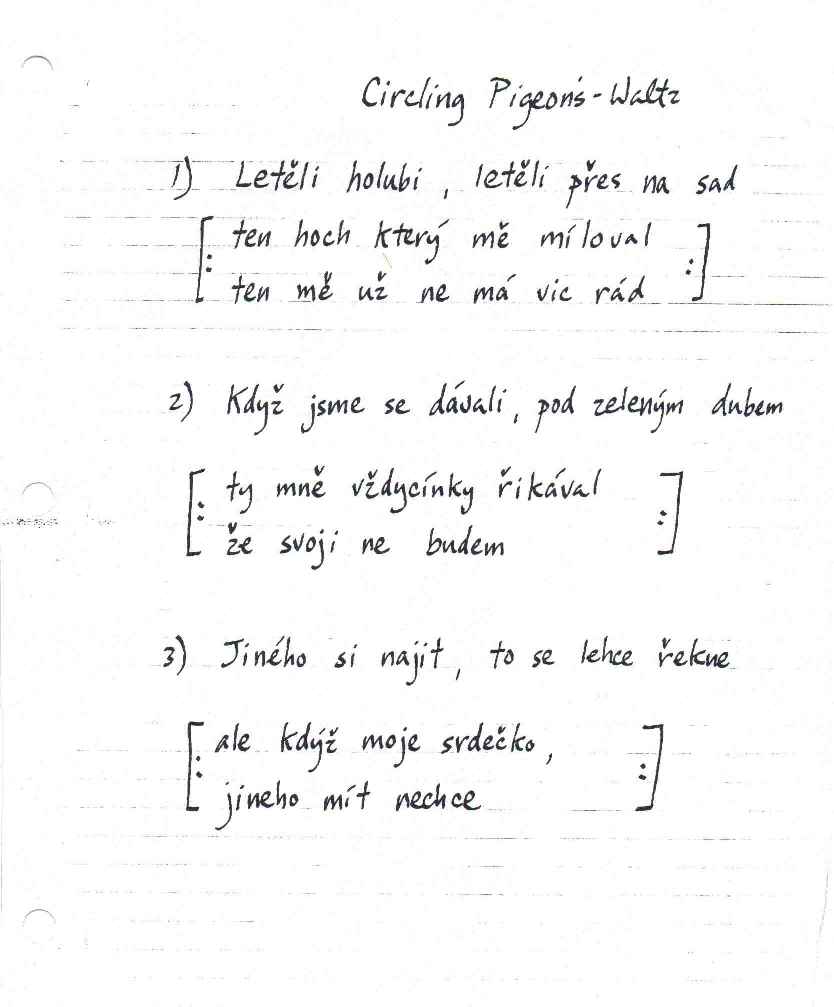 Circling Pigeon's - Waltz
1) Letěli holubi, letěli přes na sad
[: ten hoch který mě míloval :]
ten mě už ne má vic rád
2) Když jsme se dávali, pod zeleným dubem
[: ty mně vždycínky řikával :]
že svoji ne budem
3) Jiného si najit, to se lehce řekne
[: ale kdýž moje srdečko, :]
jineho mít nechce